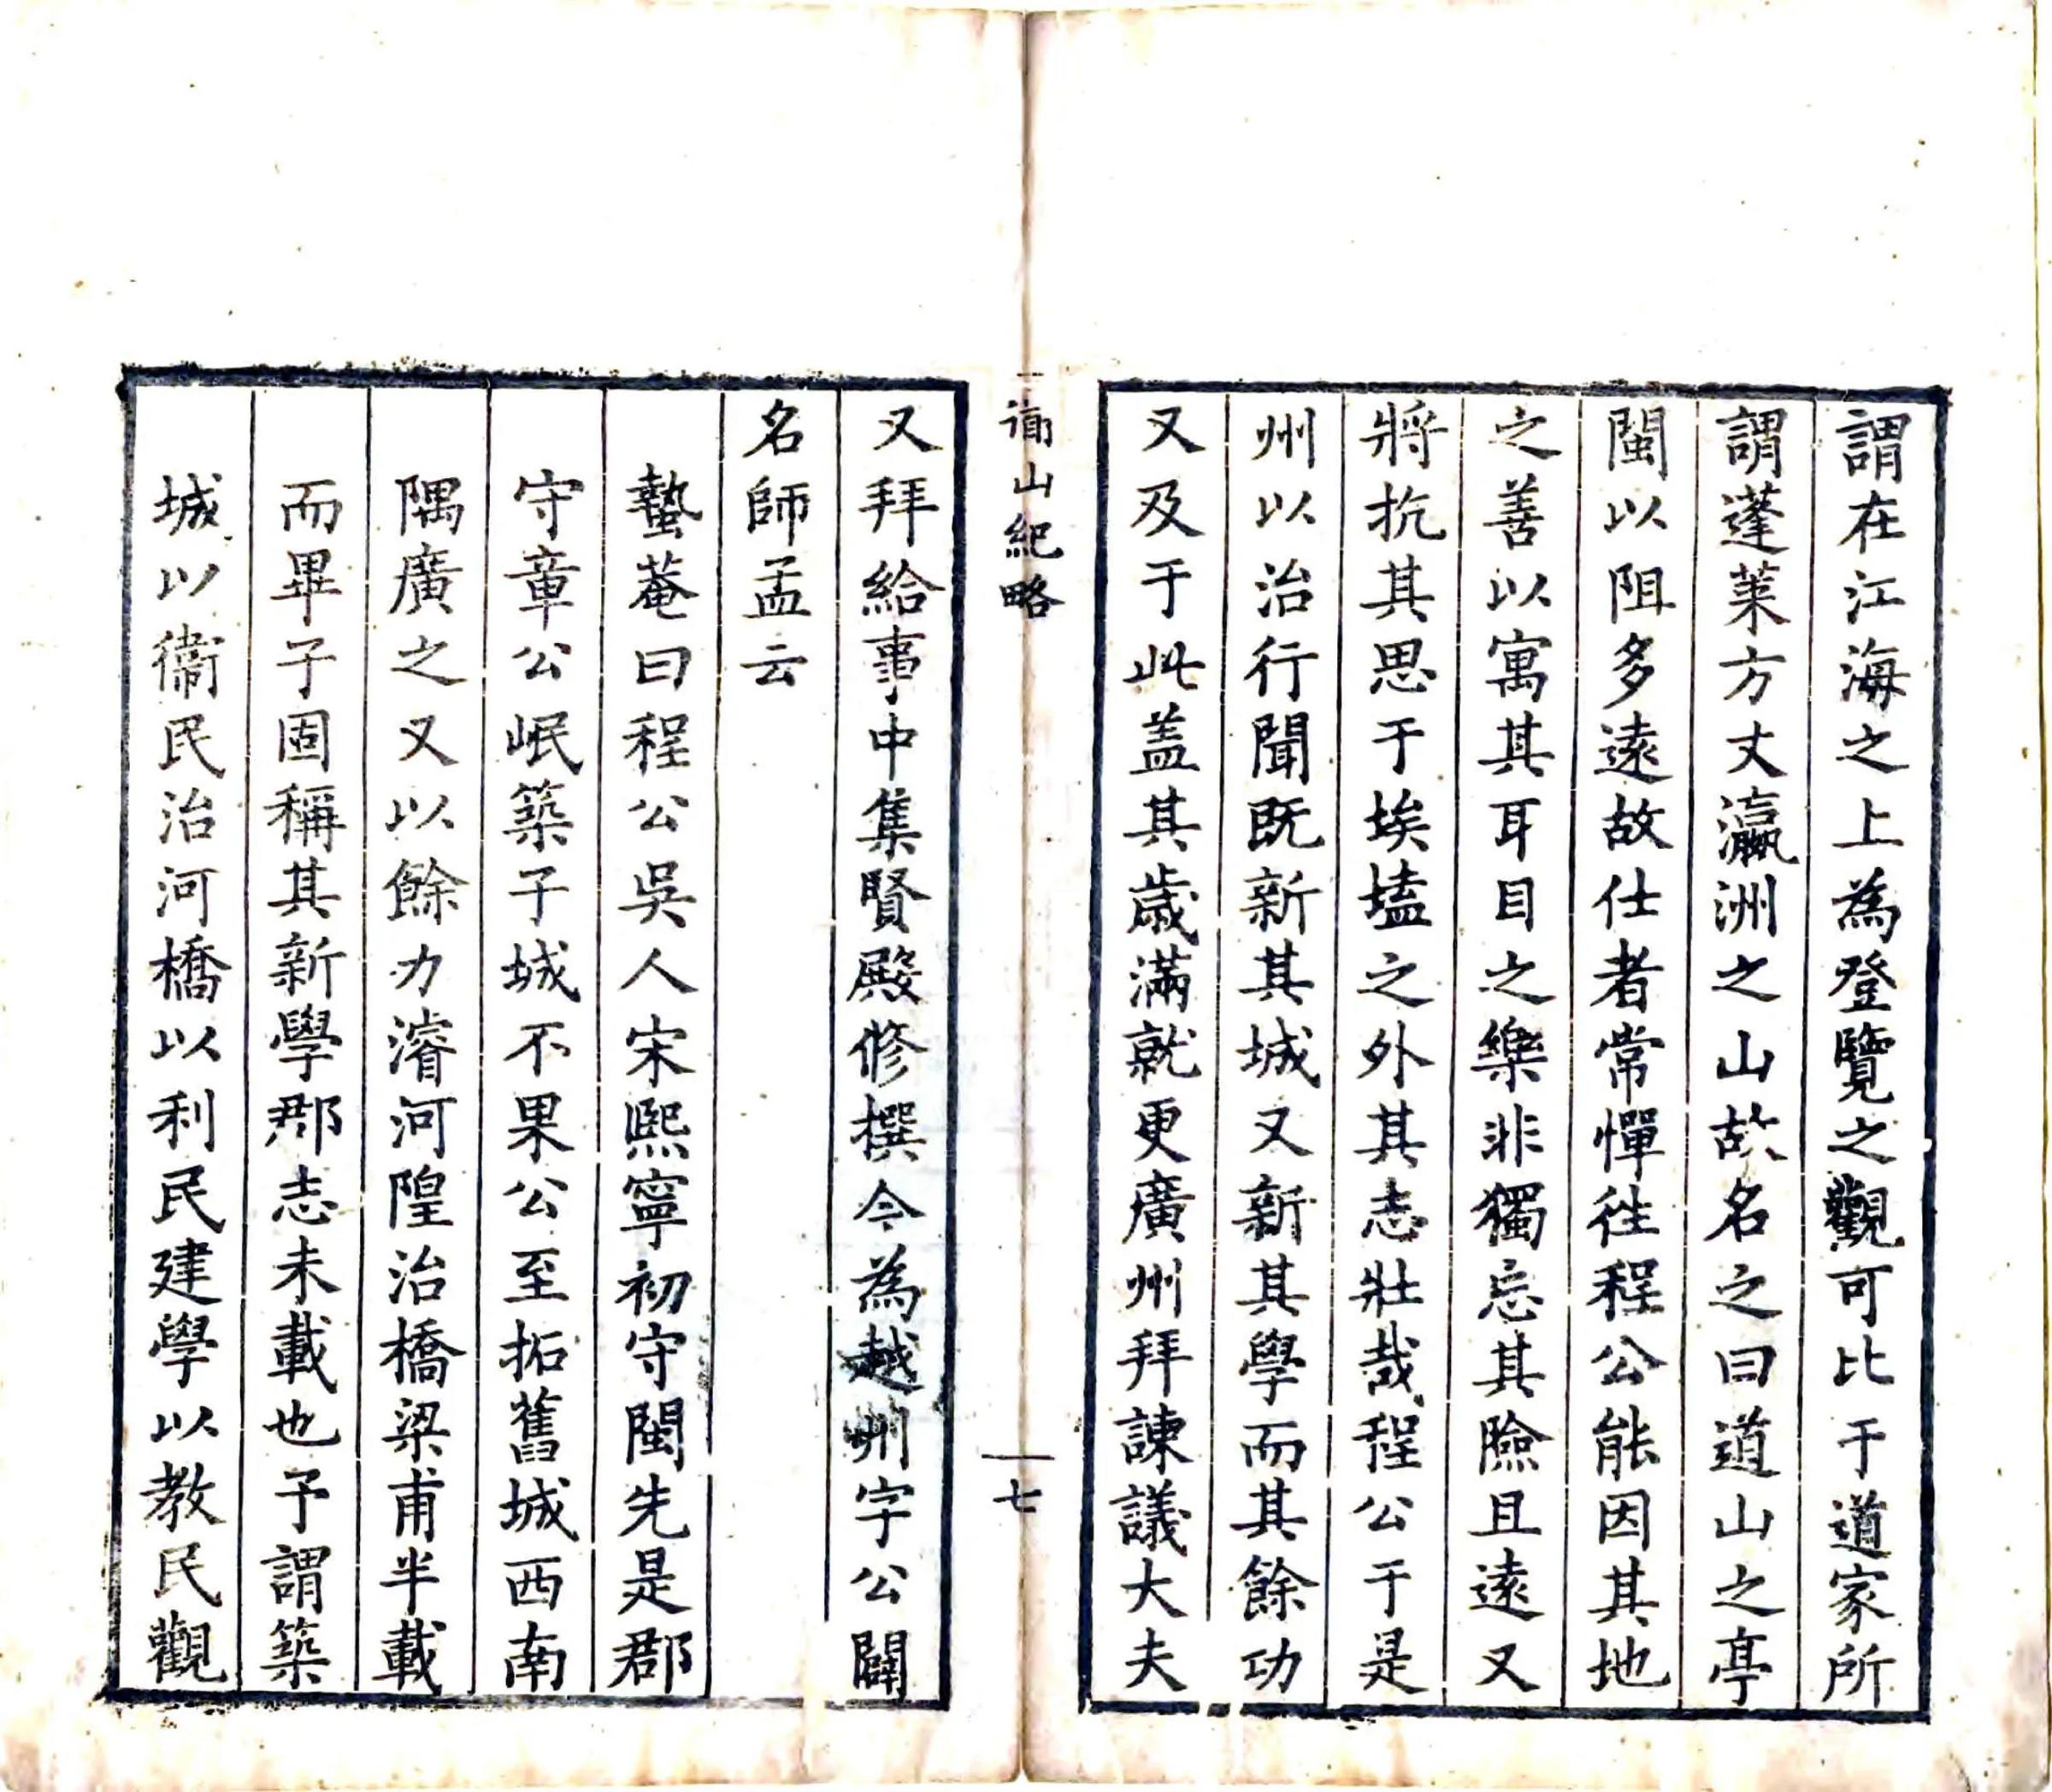 謂在江海之上為登覽之觀可比于道家所
謂蓬萊方丈瀛洲之山故名之曰道山之亭
閩以阻多遠故仕者常憚徃程公能因其地
之善以寓其耳目之樂非獨忘其險且遠又
將抗其思于埃壒之外其志壯哉程公于是
州以治行聞既新其城又新其學而其餘功
又及于此蓋其歲滿就更廣州拜諫議大夫
道山紀略
七
又拜給事中集賢殿修撰今為越州字公闢
名師孟云
蟄菴曰程公吳人宋熙寧初守閩先是郡
守章公岷築子城不果公至拓舊城西南
隅廣之又以餘力濬河隍治橋梁甫半載
而畢子固稱其新學郡志未載也予謂築
城以衞民治河橋以利民建學以教民觀